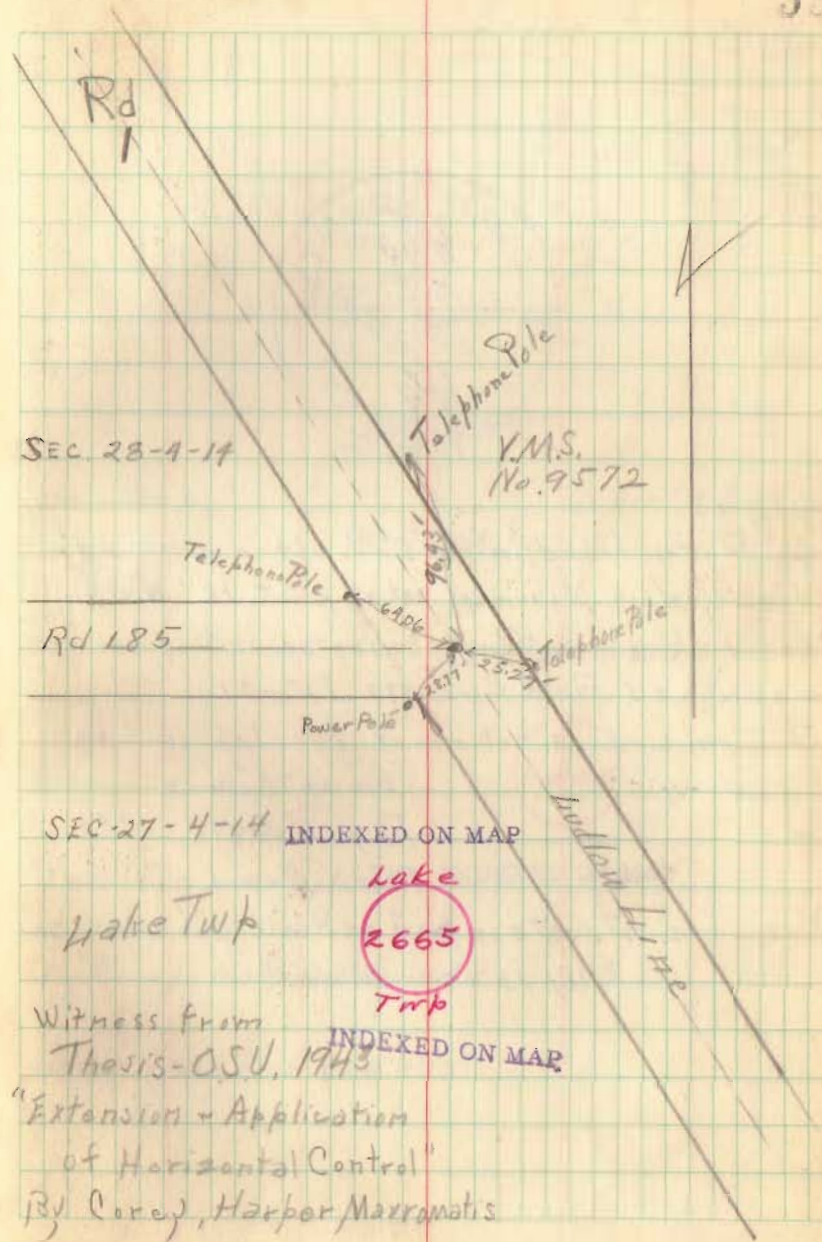 Rd
1
Telephone Pole
SEC. 28-4-14
V.M.S.
No. 9572
Telephone Pole
64.06
Rd 185
Telephone Pole
25.27
28.77
Power Pole
SEC-27-4-14
INDEXED ON MAP
Ludlow Line
Lake
2665
Twp
Lake Twp
Witness from
INDEXED ON MAP
Thesis-OSU, 1943
"Extension - Application
of Horizontal Control"
By Corey, Harper Mavromatis